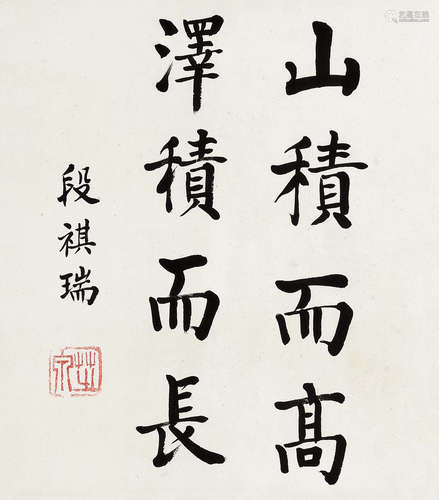 山積而高
澤積而長
段祺瑞